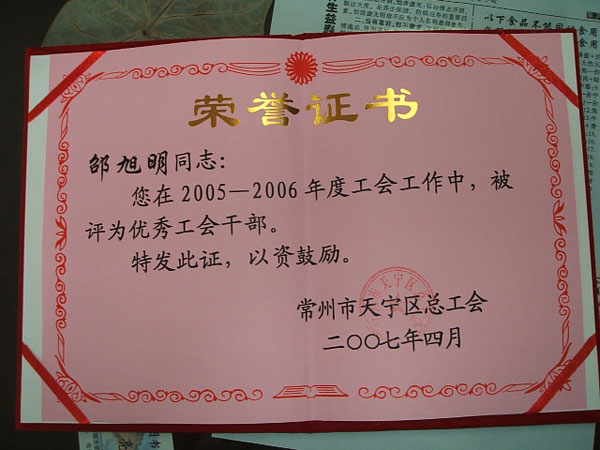 以下食品不能
荣誉证书
邵旭明同志：
您在2005—2006年度工会工作中，被
评为优秀工会干部。
特发此证，以资鼓励。
常州市天宁区总工会
二〇〇七年四月